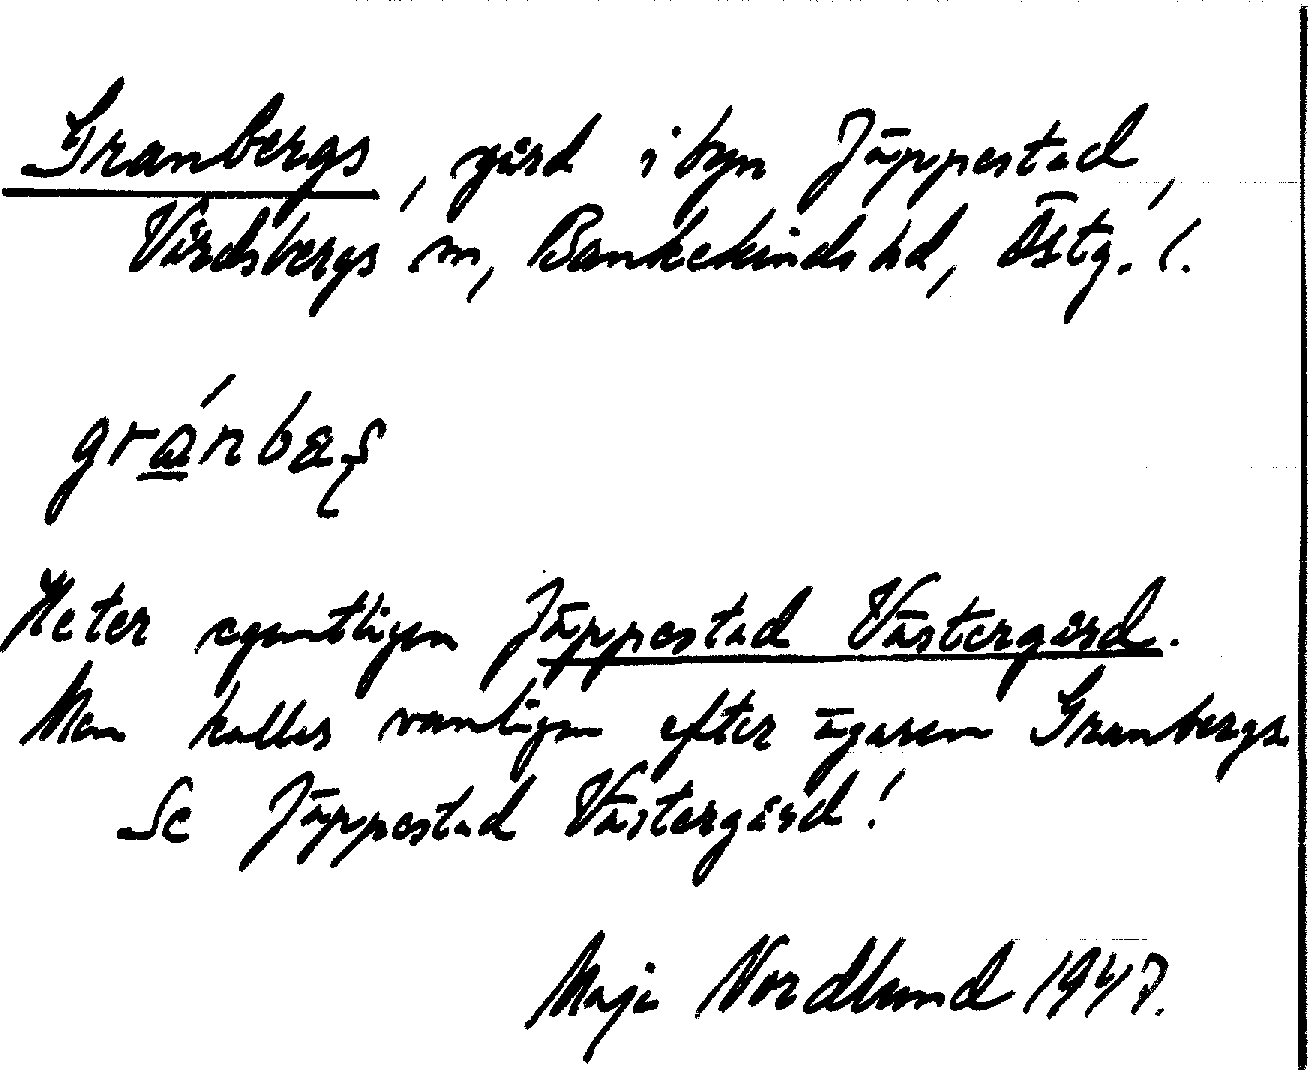 Granbergs, gård i byn Jäppestad,
Vårdsbergs sn, Bankekinds hd, Östg. l.
gránbæʂ
Heter egentligen Jäppestad Västergård.
Men kallas vanligen efter ägaren Granbergs.
Se Jäppestad Västergård!
Maja Nordlund 1947.